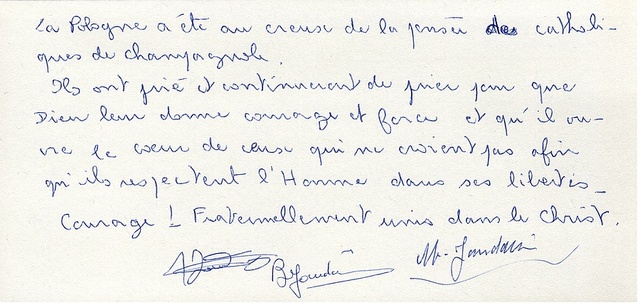 La Pologne a été au creuse de la pensée des catholi-
ques de champagnole.
Ils ont prié et continueront de prier pour que
Dieu leur donne courage et force et qu'il ou-
vre le coeur de ceux qui ne croient pas afin
qu'ils respectent l'Homme dans ses libertés -
Courage ! Fraternellement unis dans le Christ.